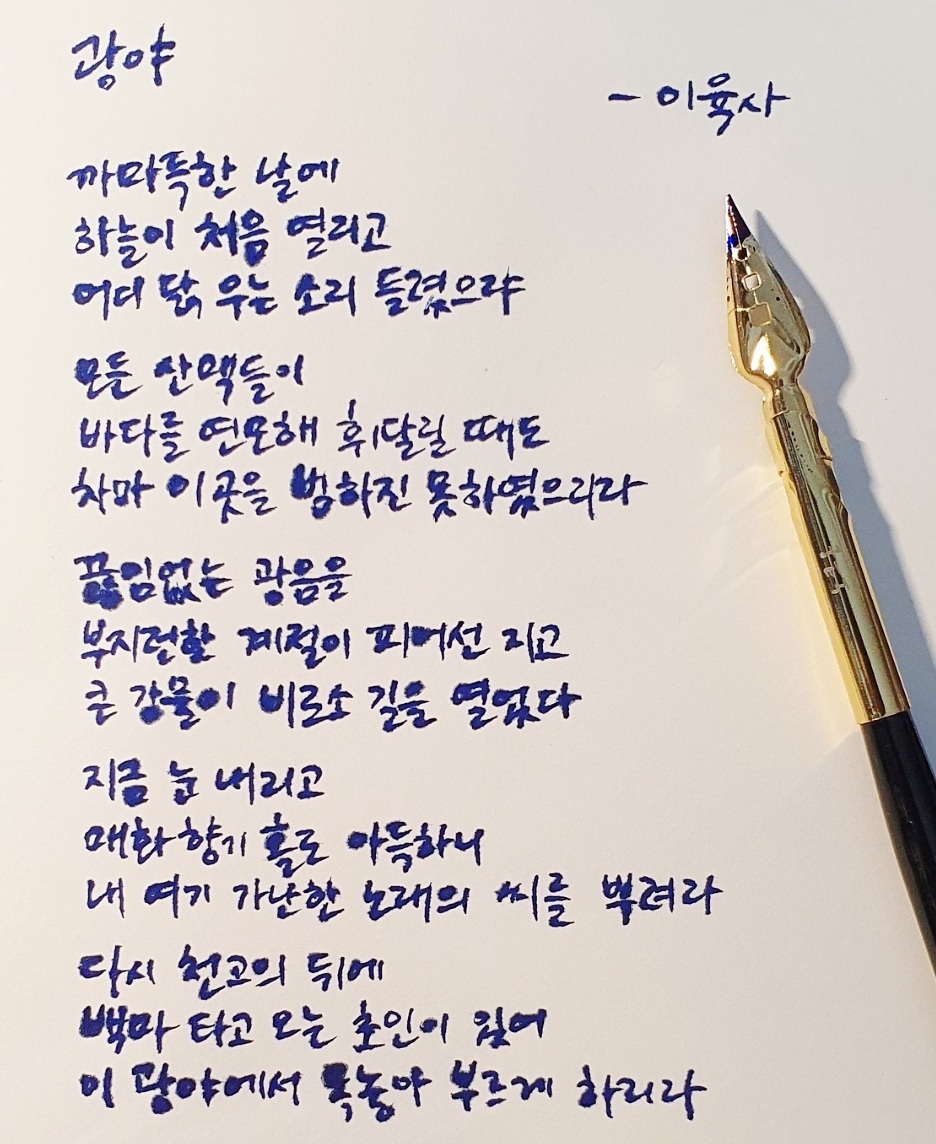 광야
- 이육사
까마득한 날에
하늘이 처음 열리고
어디 닭 우는 소리 들렸으랴
모든 산맥들이
바다를 연모해 휘달릴 때도
차마 이곳을 범하진 못하였으리라
끊임없는 광음을
부지런한 계절이 피어선 지고
큰 강물이 비로소 길을 열었다
지금 눈 내리고
매화 향기 홀로 아득하니
내 여기 가난한 노래의 씨를 뿌려라
다시 천고의 뒤에
백마 타고 오는 초인이 있어
이 광야에서 목놓아 부르게 하리라